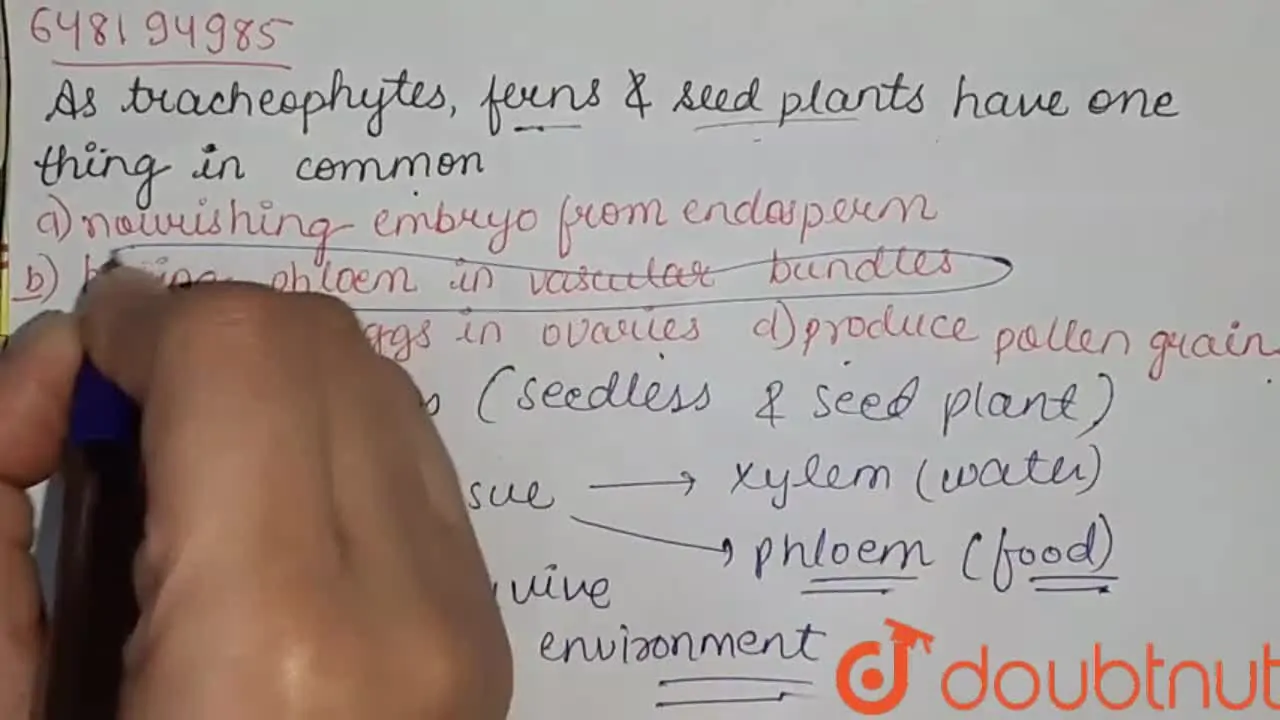 648194985
As tracheophytes, ferns & seed plants have one
thing in common
a) nourishing embryo from endosperm
b) phloem in vascular bundles
in ovaries d) produce pollen grain
(seedless & seed plant)
xylem (water)
phloem (food)
environment
doubtnut